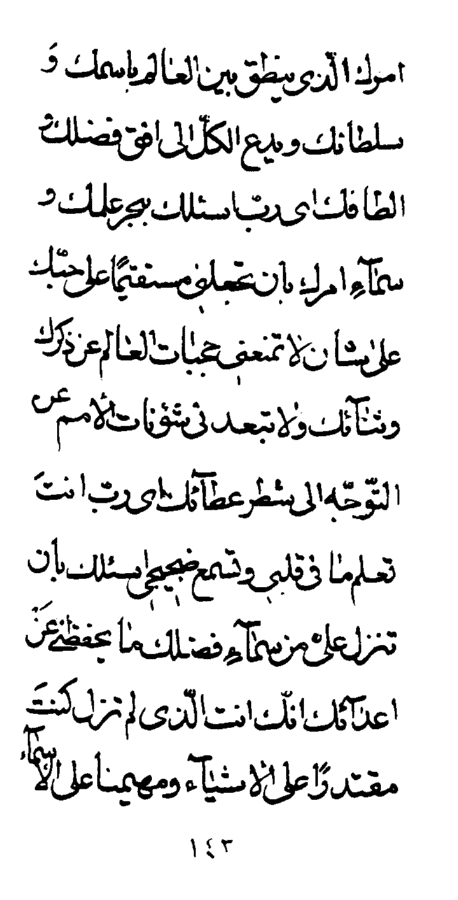 امرك الّذى ينطق بين العالم باسمك و
سلطانك و يدع الكلّ الى افق فضلك و
الطافك اى ربّ اسئلك ببحر علمك و
سمآء امرك بان تجعلنى مستقيمًا على حبّك
على شأن لا تمنعنى حجبات العالم عن ذكرك
و ثنآئك و لا تبعدنى شئونات الأمم عن
التّوجّه الى شطر عطآئك اى ربّ انت
تعلم ما فى قلبى و تسمع ضجيجى اسئلك بان
تنزل علىّ من سمآء فضلك ما يحفظنى عن
اعدآئك انّك انت الّذى لم تزل كنت
مقتدرًا على الأشيآء و مهيمنا على الأسمآء
١٤٣